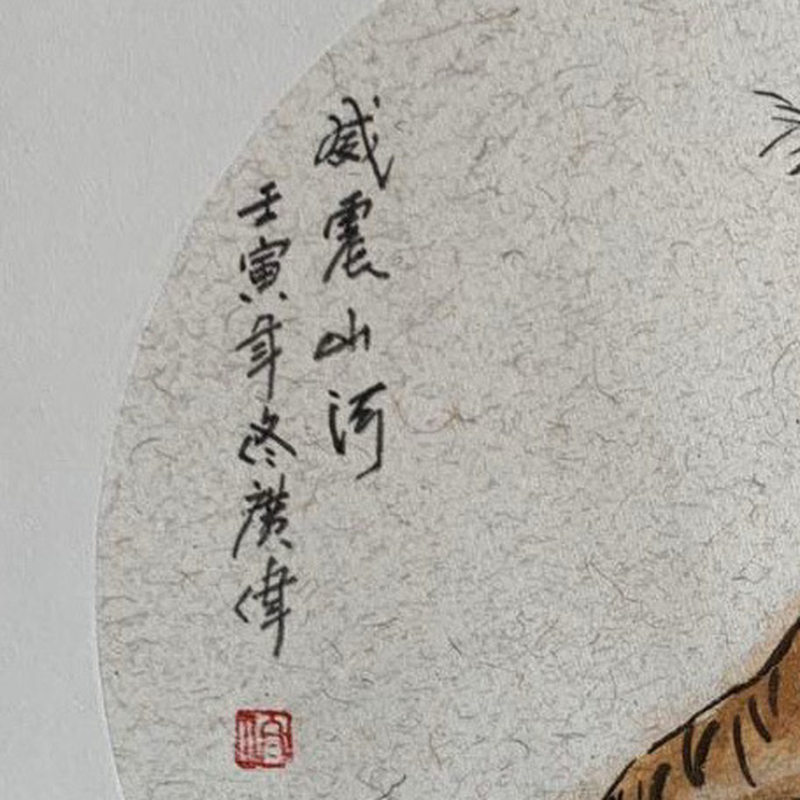 威震山河
壬寅年冬廣偉